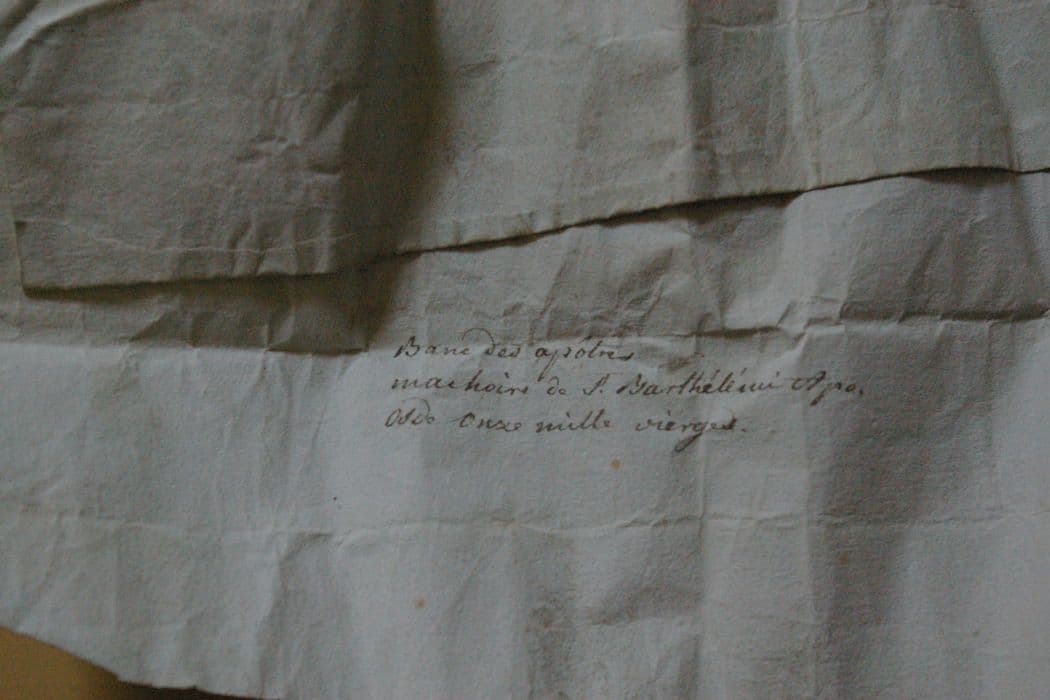 Banc des apôtres
machoire de S.t Barthélémi Apo.
Os de Onze mille vierges.